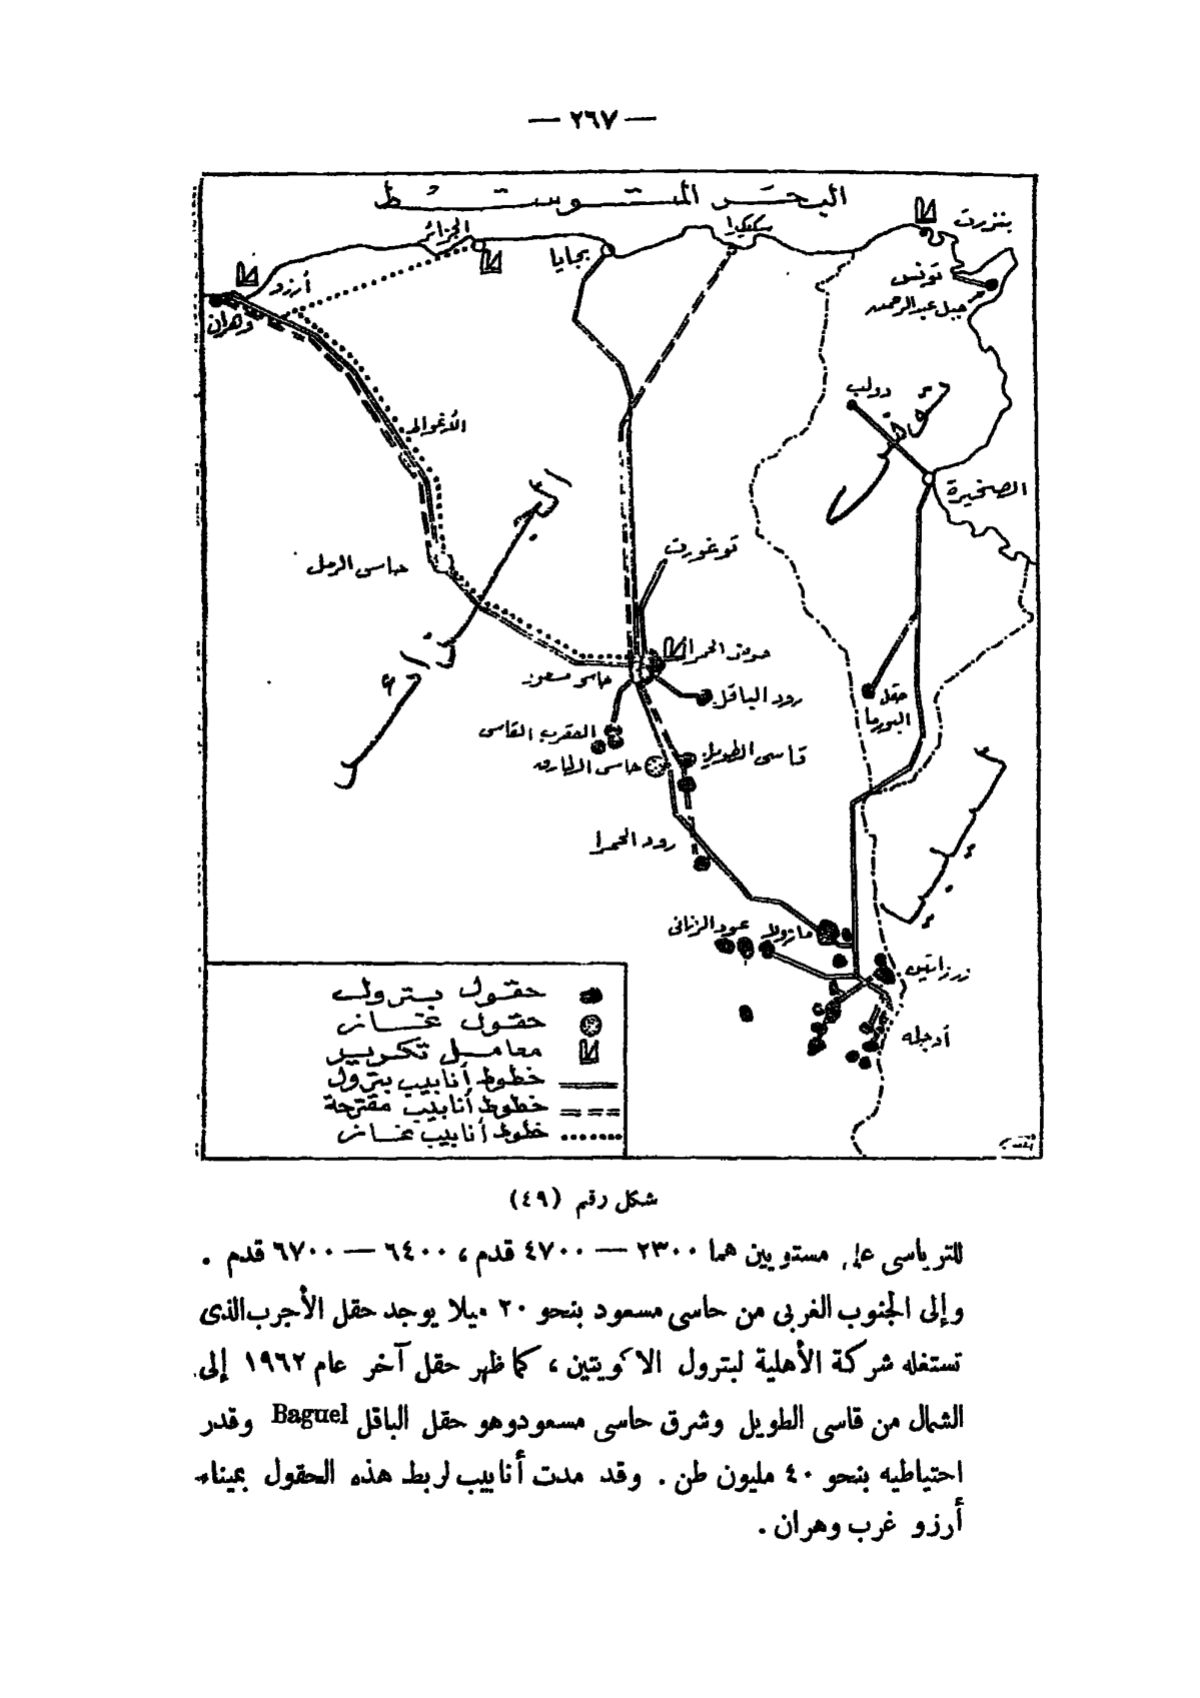 — ٢٦٧ —
البحر المتوسط
بنزرت
سكيكدا
الجزائر
بجايا
تونس
أرزو
جبل عبدالرحمن
وهران
دولب
تونس
الأغواط
الصخيرة
الجزائر
توغورت
حاسى الرمل
حوض الحمرا
حاسى مسعود
رود الباقل
حقل
البورما
العقرب القاسى
قاسى الطويل
حاسى الطارف
ليبيا
رود الحمرا
عود الزناتى
زرزايتين
أدجله
حقول بترول
حقول غاز
معامل تكرير
خطوط أنابيب بترول
خطوط أنابيب مقترحة
خطوط أنابيب غاز
شكل رقم (٤٩)
للترياسى على مستويين هما ٢٣٠٠ — ٤٧٠٠ قدم ، ٦٤٠٠ — ٦٧٠٠ قدم .
وإلى الجنوب الغربى من حاسى مسعود بنحو ٢٠ ميلا يوجد حقل الأجرب الذى
تستغله شركة الأهلية لبترول الاكويتين ، كما ظهر حقل آخر عام ١٩٦٢ إلى
الشمال من قاسى الطويل وشرق حاسى مسعود وهو حقل الباقل Baguel وقدر
احتياطيه بنحو ٤٠ مليون طن . وقد مدت أنابيب لربط هذه الحقول بميناء
أرزو غرب وهران .